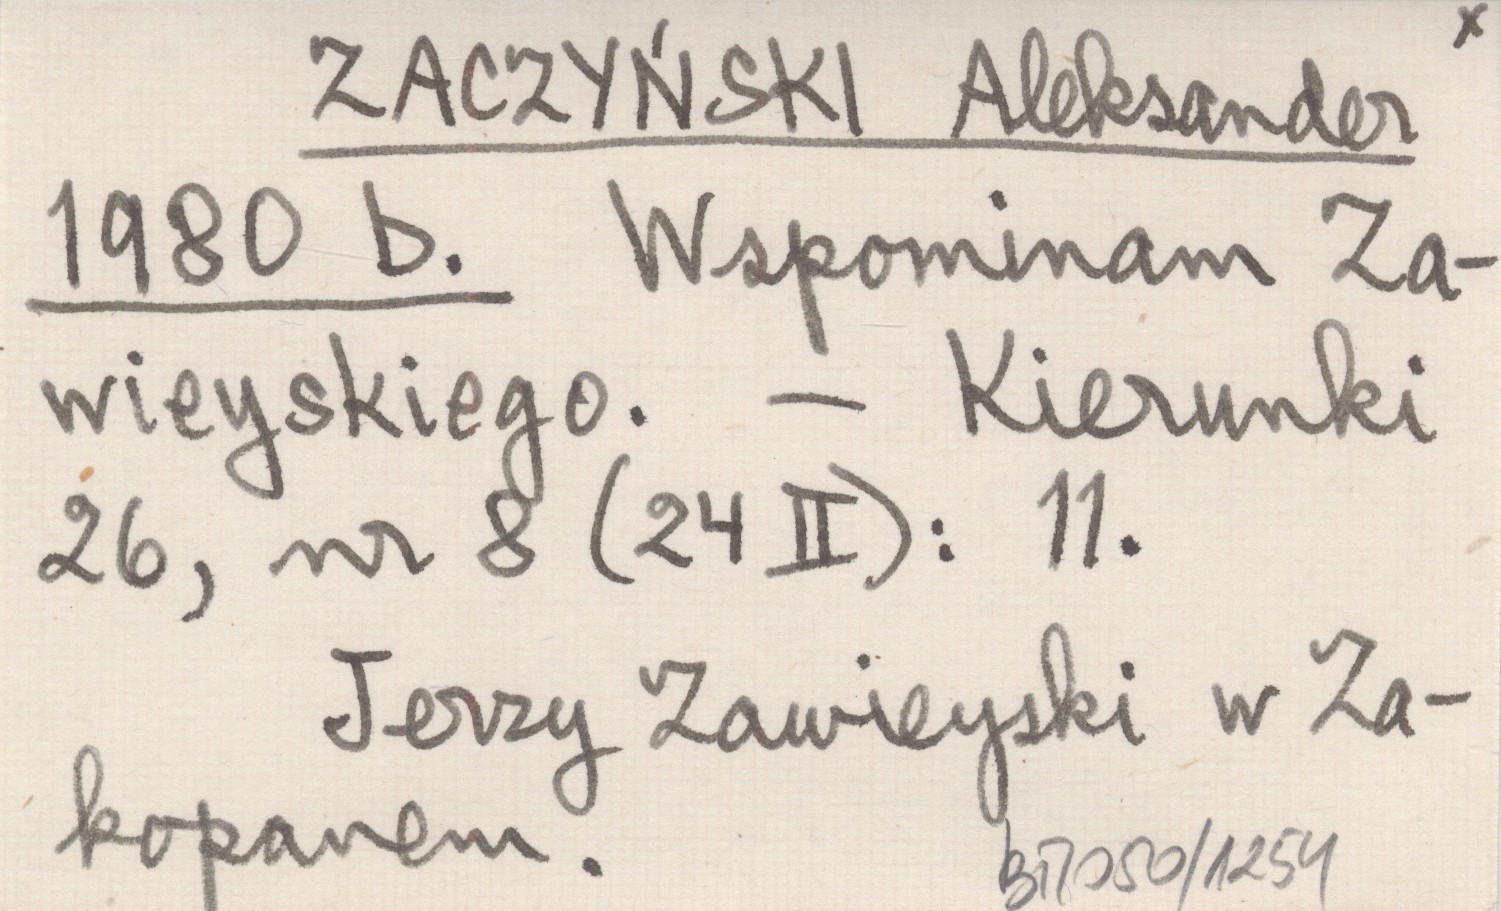 x
ZACZYŃSKI Aleksander
1980 b. Wspominam Za-
wieyskiego. — Kierunki
26, nr 8 (24 II): 11.
Jerzy Zawieyski w Za-
kopanem.